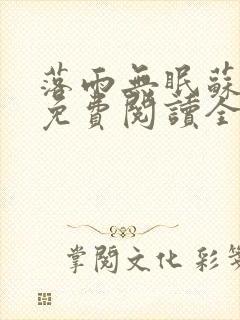 落雨無眠蘇
免費閱讀全
掌閱文化 彩